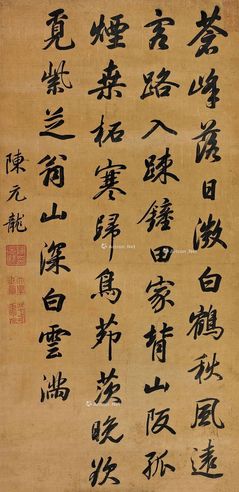 蒼峰落日澂白鶴秋風遠
客路入踈鐘田家背山阪孤
煙桑柘寒歸鳥茆茨晚欲
覓紫芝翁山深白雲滿
陳元龍